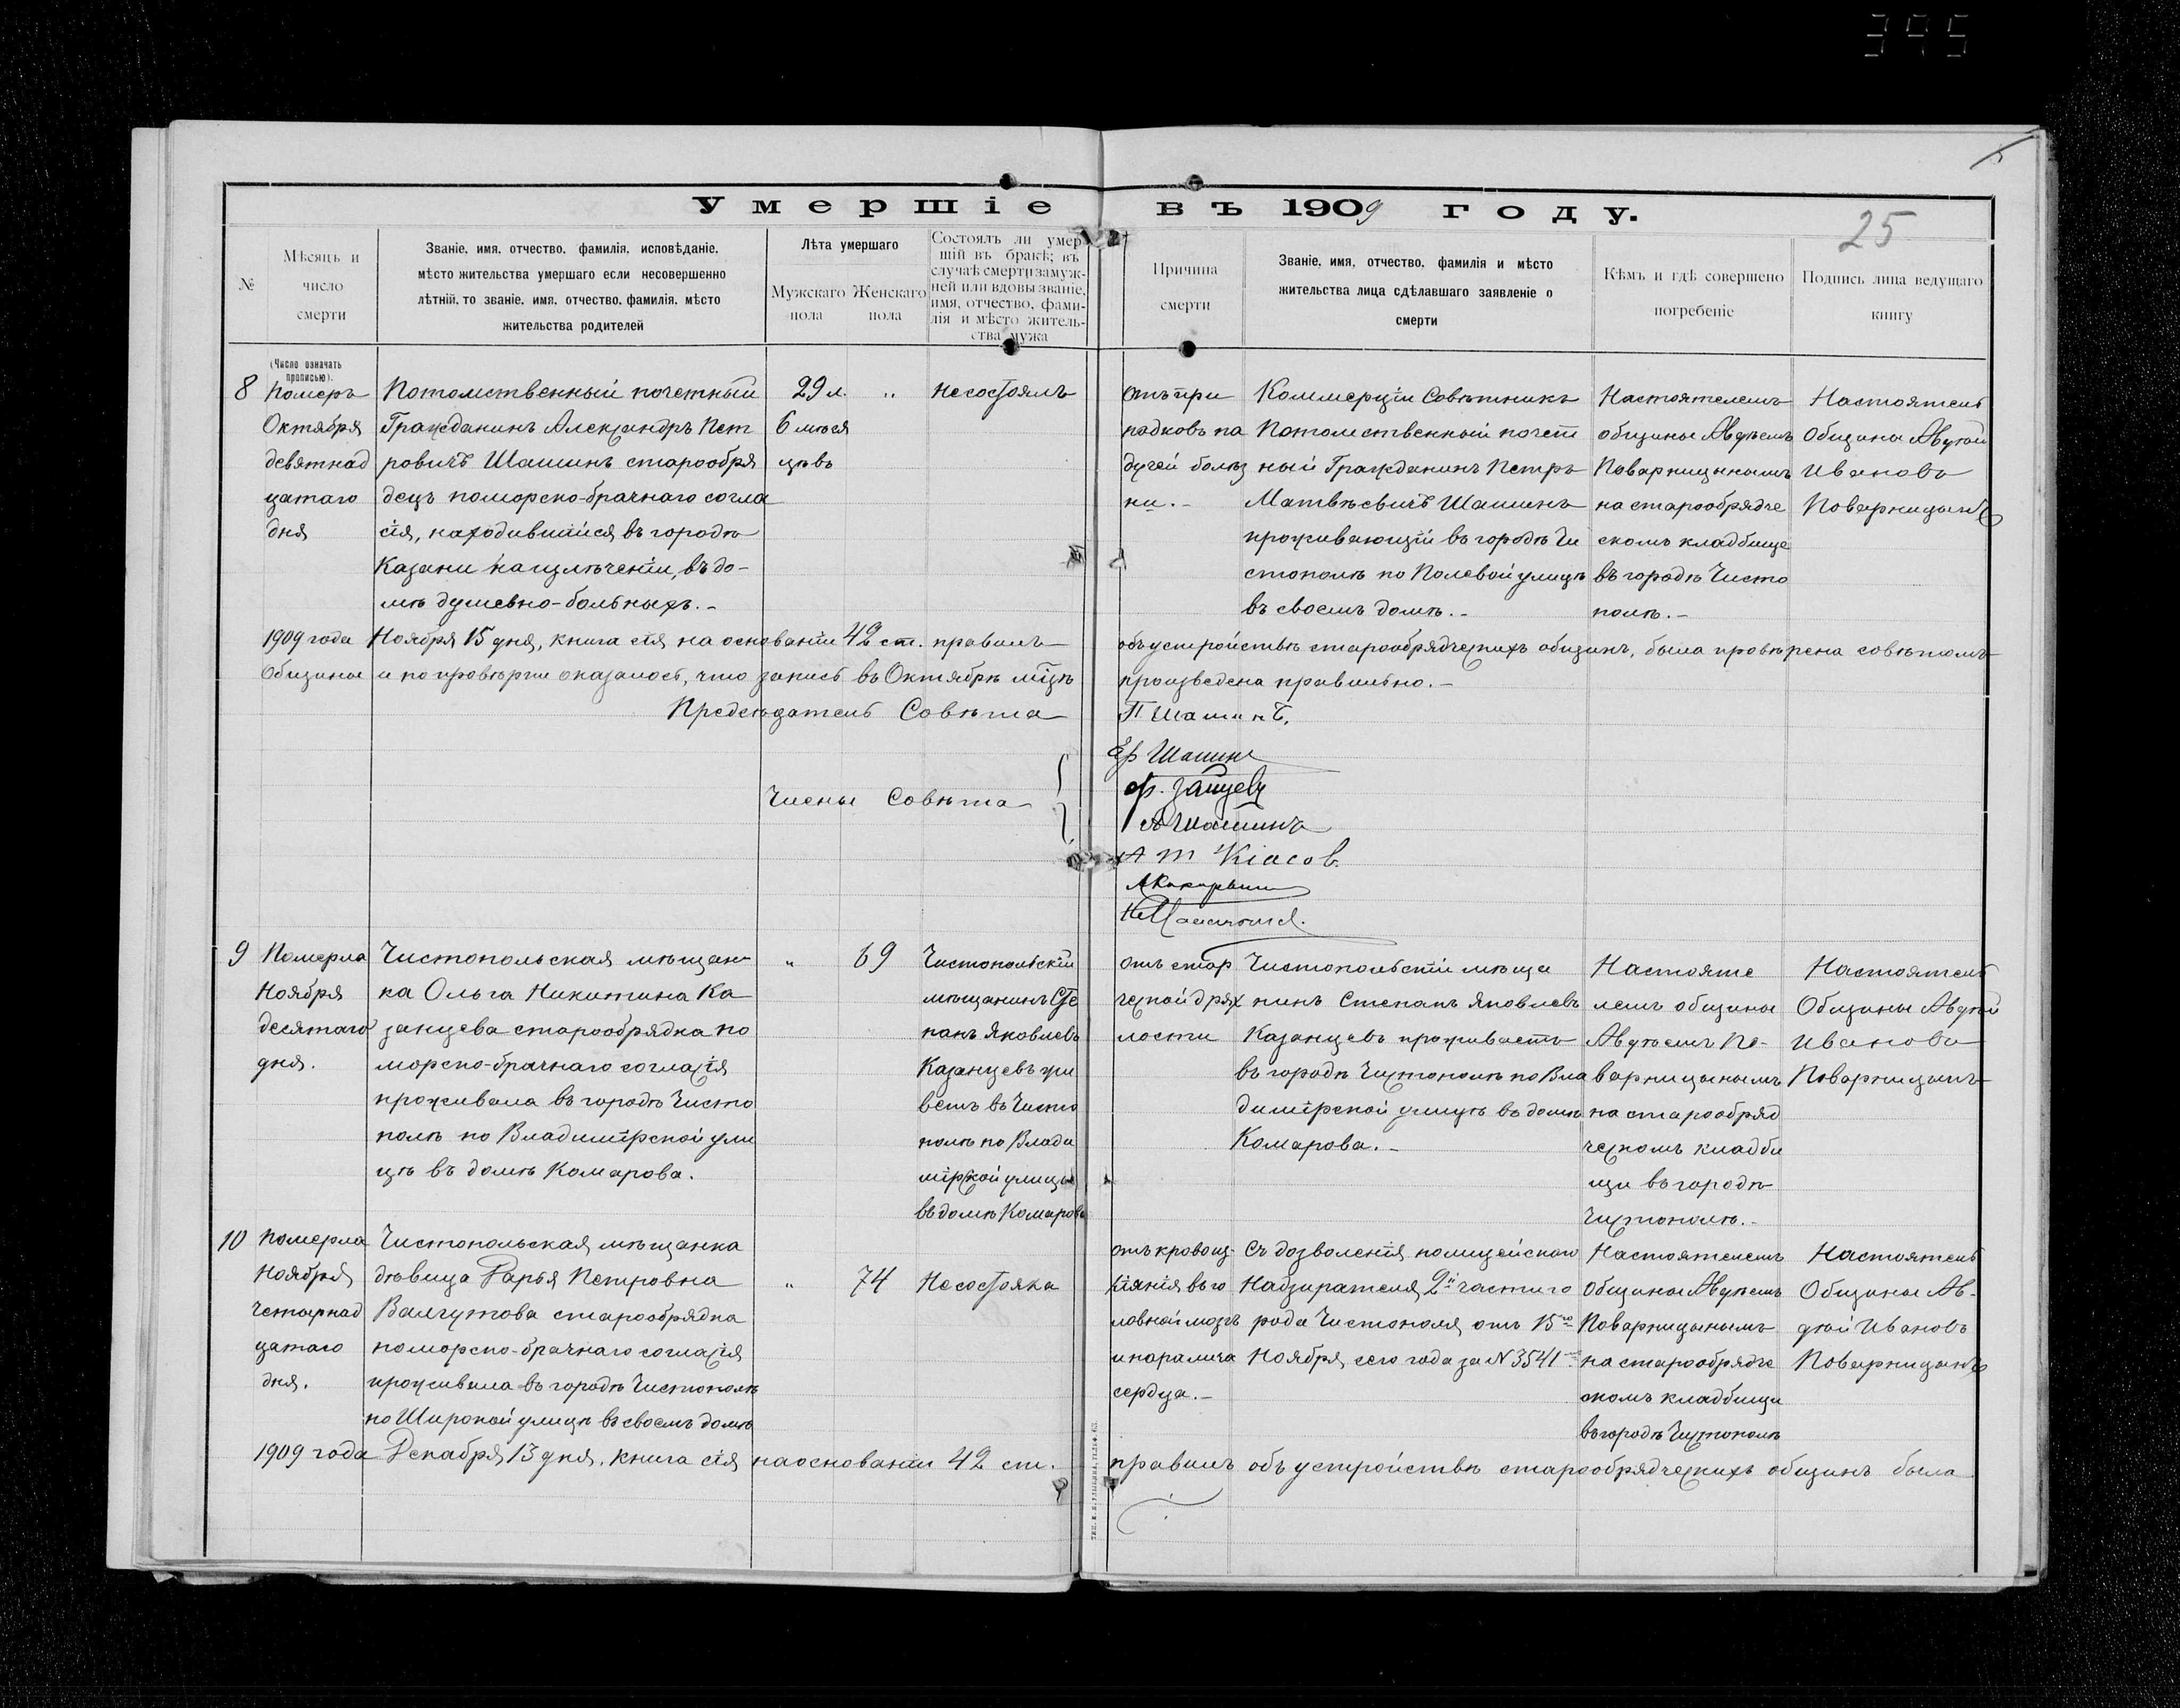 395
Умершіе въ 1909 году.
25
№
Мѣсяцъ и
число
смерти
Званіе, имя, отчество, фамилія, исповѣданіе,
мѣсто жительства умершаго если несовершенно
лѣтній, то званіе, имя, отчество, фамилія, мѣсто
жительства родителей
Лѣта умершаго
Мужскаго
пола
Женскаго
пола
Состоялъ ли умер
шій въ бракѣ; въ
случаѣ смерти замуж-
ней или вдовы званіе,
имя, отчество, фами-
лія и мѣсто житель-
ства мужа
Причина
смерти
Званіе, имя, отчество, фамилія и мѣсто
жительства лица сдѣлавшаго заявленіе о
смерти
Кѣмъ и гдѣ совершено
погребеніе
Подпись лица ведущаго
книгу
(Число означать
прописью).
8
Померъ
Октября
девятнад
цатаго
дня
Потомственный почетный
Гражданинъ Александръ Пет
ровичъ Шашинъ старообря
децъ поморско-брачнаго согла
сія, находившійся въ городѣ
Казани на излѣченіи, въ до-
мѣ душевно-больныхъ.-
29 л.
6 мѣся
цевъ
"
Несостоялъ
отъ при
падковъ па
дучей болѣз
ни.-
Коммерціи Совѣтникъ
Потомственный почет
ный Гражданинъ Петръ
Матвѣевичъ Шашинъ
проживающій въ городѣ Чи
стополѣ по Полевой улицѣ
въ своемъ домѣ.-
Настоятелемъ
общины Авдѣемъ
Поварницынымъ
на старообрядче
скомъ кладбище
въ городѣ Чисто
полѣ.-
Настоятель
Общины Авдѣй
Ивановъ
Поварницынъ
1909 года Ноября 15 дня, книга сія на основаніи 42 ст. правилъ объ устройствѣ старообрядческихъ общинъ, была провѣрена совѣтомъ
Общины и по провѣрки оказалось, что запись въ Октябрѣ м̅цѣ произведена правильно.-
Предсѣдатель Совѣта П Шашинъ.
Члены Совѣта
Ер Шашинъ
Ф. Зайцевъ
А Шашинъ
А Т Кіасов.
9
Померла
Ноября
десятаго
дня.
Чистопольская мѣщан
ка Ольга Никитина Ка
занцева старообрядка по
морско-брачнаго согласія
проживала въ городѣ Чисто
полѣ по Владимірской ули
цѣ въ домѣ Комарова.
"
69
Чистопольскій
мѣщанинъ Сте
панъ Яковлевъ
Казанцевъ жи
ветъ въ Чисто
полѣ по Влади
мірской улицѣ
въ домѣ Комарова
отъ стар
ческой дрях
лости
Чистопольскій мѣща
нинъ Степанъ Яковлевъ
Казанцевъ проживаетъ
въ городѣ Чистополѣ по Вла
димірской улицѣ въ домѣ
Комарова.-
Настояте
лемъ общины
Авдѣемъ По-
варницынымъ
на старообряд
ческомъ кладби
щи въ городѣ
Чистополѣ.-
Настоятель
Общины Авдѣй
Ивановъ
Поварницынъ
10
Померла
Ноября
четырнад
цатаго
дня.
Чистопольская мѣщанка
дѣвица Дарья Петровна
Валчутова старообрядка
поморско-брачнаго согласія
проживала въ городѣ Чистополѣ
по Широкой улицѣ въ своемъ домѣ
"
74
Несостояла
отъ кровоиз
ліянія въ го
ловной мозгъ
и паралича
сердца.-
Съ дозволенія полицейскаго
Надзирателя, 2й части го
рода Чистополя, отъ 15го
Ноября, сего года за № 3541
Настоятелемъ
Общины Авдѣемъ
Поварницынымъ
на старообрядче
скомъ кладбищи
въ городѣ Чистополѣ
Настоятель
Общины Ав-
дѣй Ивановъ
Поварницынъ
1909 года Декабря, 13 дня, книга сія на основаніи 42 ст. правилъ объ устройствѣ старообрядческихъ общинъ была